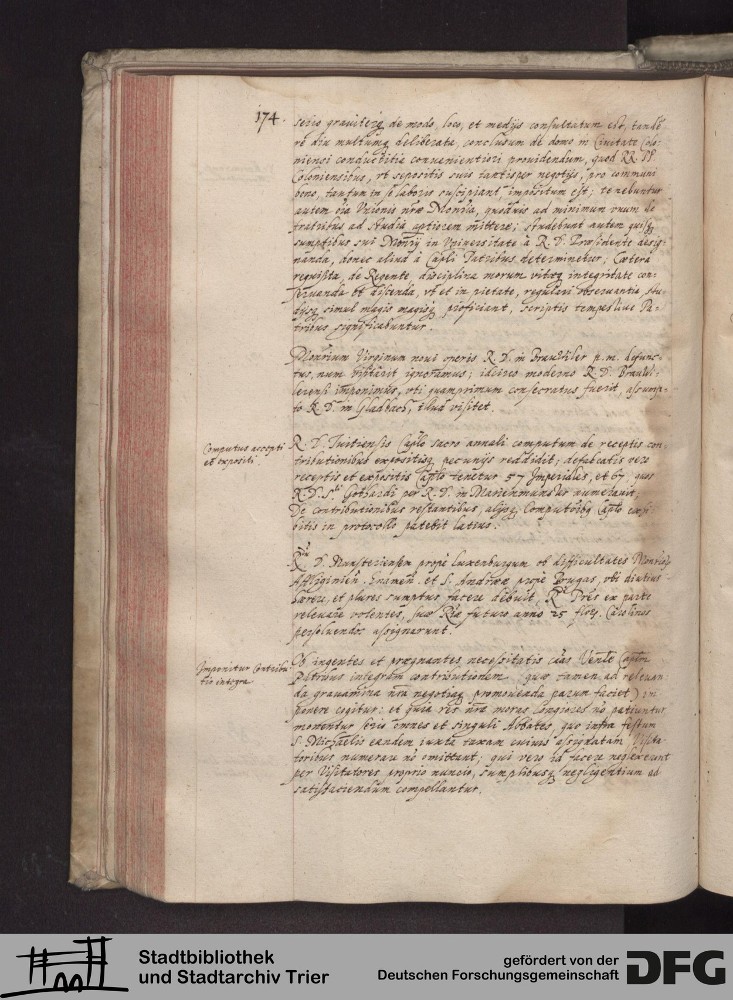 174.
serio graviterq de modo, loco, et medijs consultatum est, tandē
re diu multumq deliberata, conclusum de domo in Civitate Colo:
niensi conductitia convenientiori providendum, quod RR. PP.
Coloniensibus, vt sepositis suis tantisper negotijs, pro communi
bono, tantum in se laboris suscipiant, impositum est; tenebuntur
autem oīa Vnionis nrae Monria, quāvis ad minimum vnum de
fratribus ad studia aptiorem mittere; studebunt autem quilq
sumptibus sui Monrij in Vniversitate à R. D. Praesidente desig-
nanda, donec aliud à Capli Patribus determinetur; Caetera
requisita, de Regente, disciplina morum vitaeq integritate con-
servanda et discenda, vt et in pietate, regulari observantia, stu-
dijsq simul magis magisq proficiant, scriptis tempestive Pa-
tribus significabuntur.
Monrium Virginum novi operis R. D. in Brauwiler p. m. defunc-
tus, num visitavit ignoramus; idcirco moderno R. D. Brauwi-
lerensi imponimus, vti quamprimum consecratus fuerit, assump-
to R. D. in Gladbach, illud visitet.
Computus accepti
et expositi.
R. D. Tuitiensis Caplo sacro annali computum de receptis con-
tributionibus expositisq pecunijs reddidit; defalcatis vero
receptis et expositis Caplo tenetur 57 Imperiales, et 67, quos
R. D. S.ti Gothardi per R. D. in Marienmunster numeravit.
De contributionibus restantibus, alijsq Computibq Caplo exhi-
bitis in protocollo patebit latius.
R.dū D. Munsteriensem prope Luxenburgum ob difficultates Montis
Affligimien. Inamen. et S. Andreae prope Brugas, vbi diutius
haerere, et plures sumptus facere debuit, R.di Pres ex parte
relevare volentes, suae Rae futuro anno 25 flor. Carolinos
persolvendos assignarunt.
Imponitur Contribu-
tio integra.
Ob ingentes et praegnantes necessitatis cāas Venle Caplm
Patribus integram contributionem (quae tamen ad relevan-
da gravamina nra negotiaq promovenda parum faciet) im-
ponere cogitur: et quia res nra moras longiores nō patiuntur
monentur serio omnes et singuli Abbates, quo infra festum
S. Michaelis eandem iuxta taxam cuivis assignatam, Visita-
toribus numerare nō omittant; qui vero id facere neglexerint
per Visitatores proprio nuncio, sumptibusq negligentium ad
satisfaciendum compellantur.
Stadtbibliothek
und Stadtarchiv Trier
gefördert von der
Deutschen Forschungsgemeinschaft
DFG